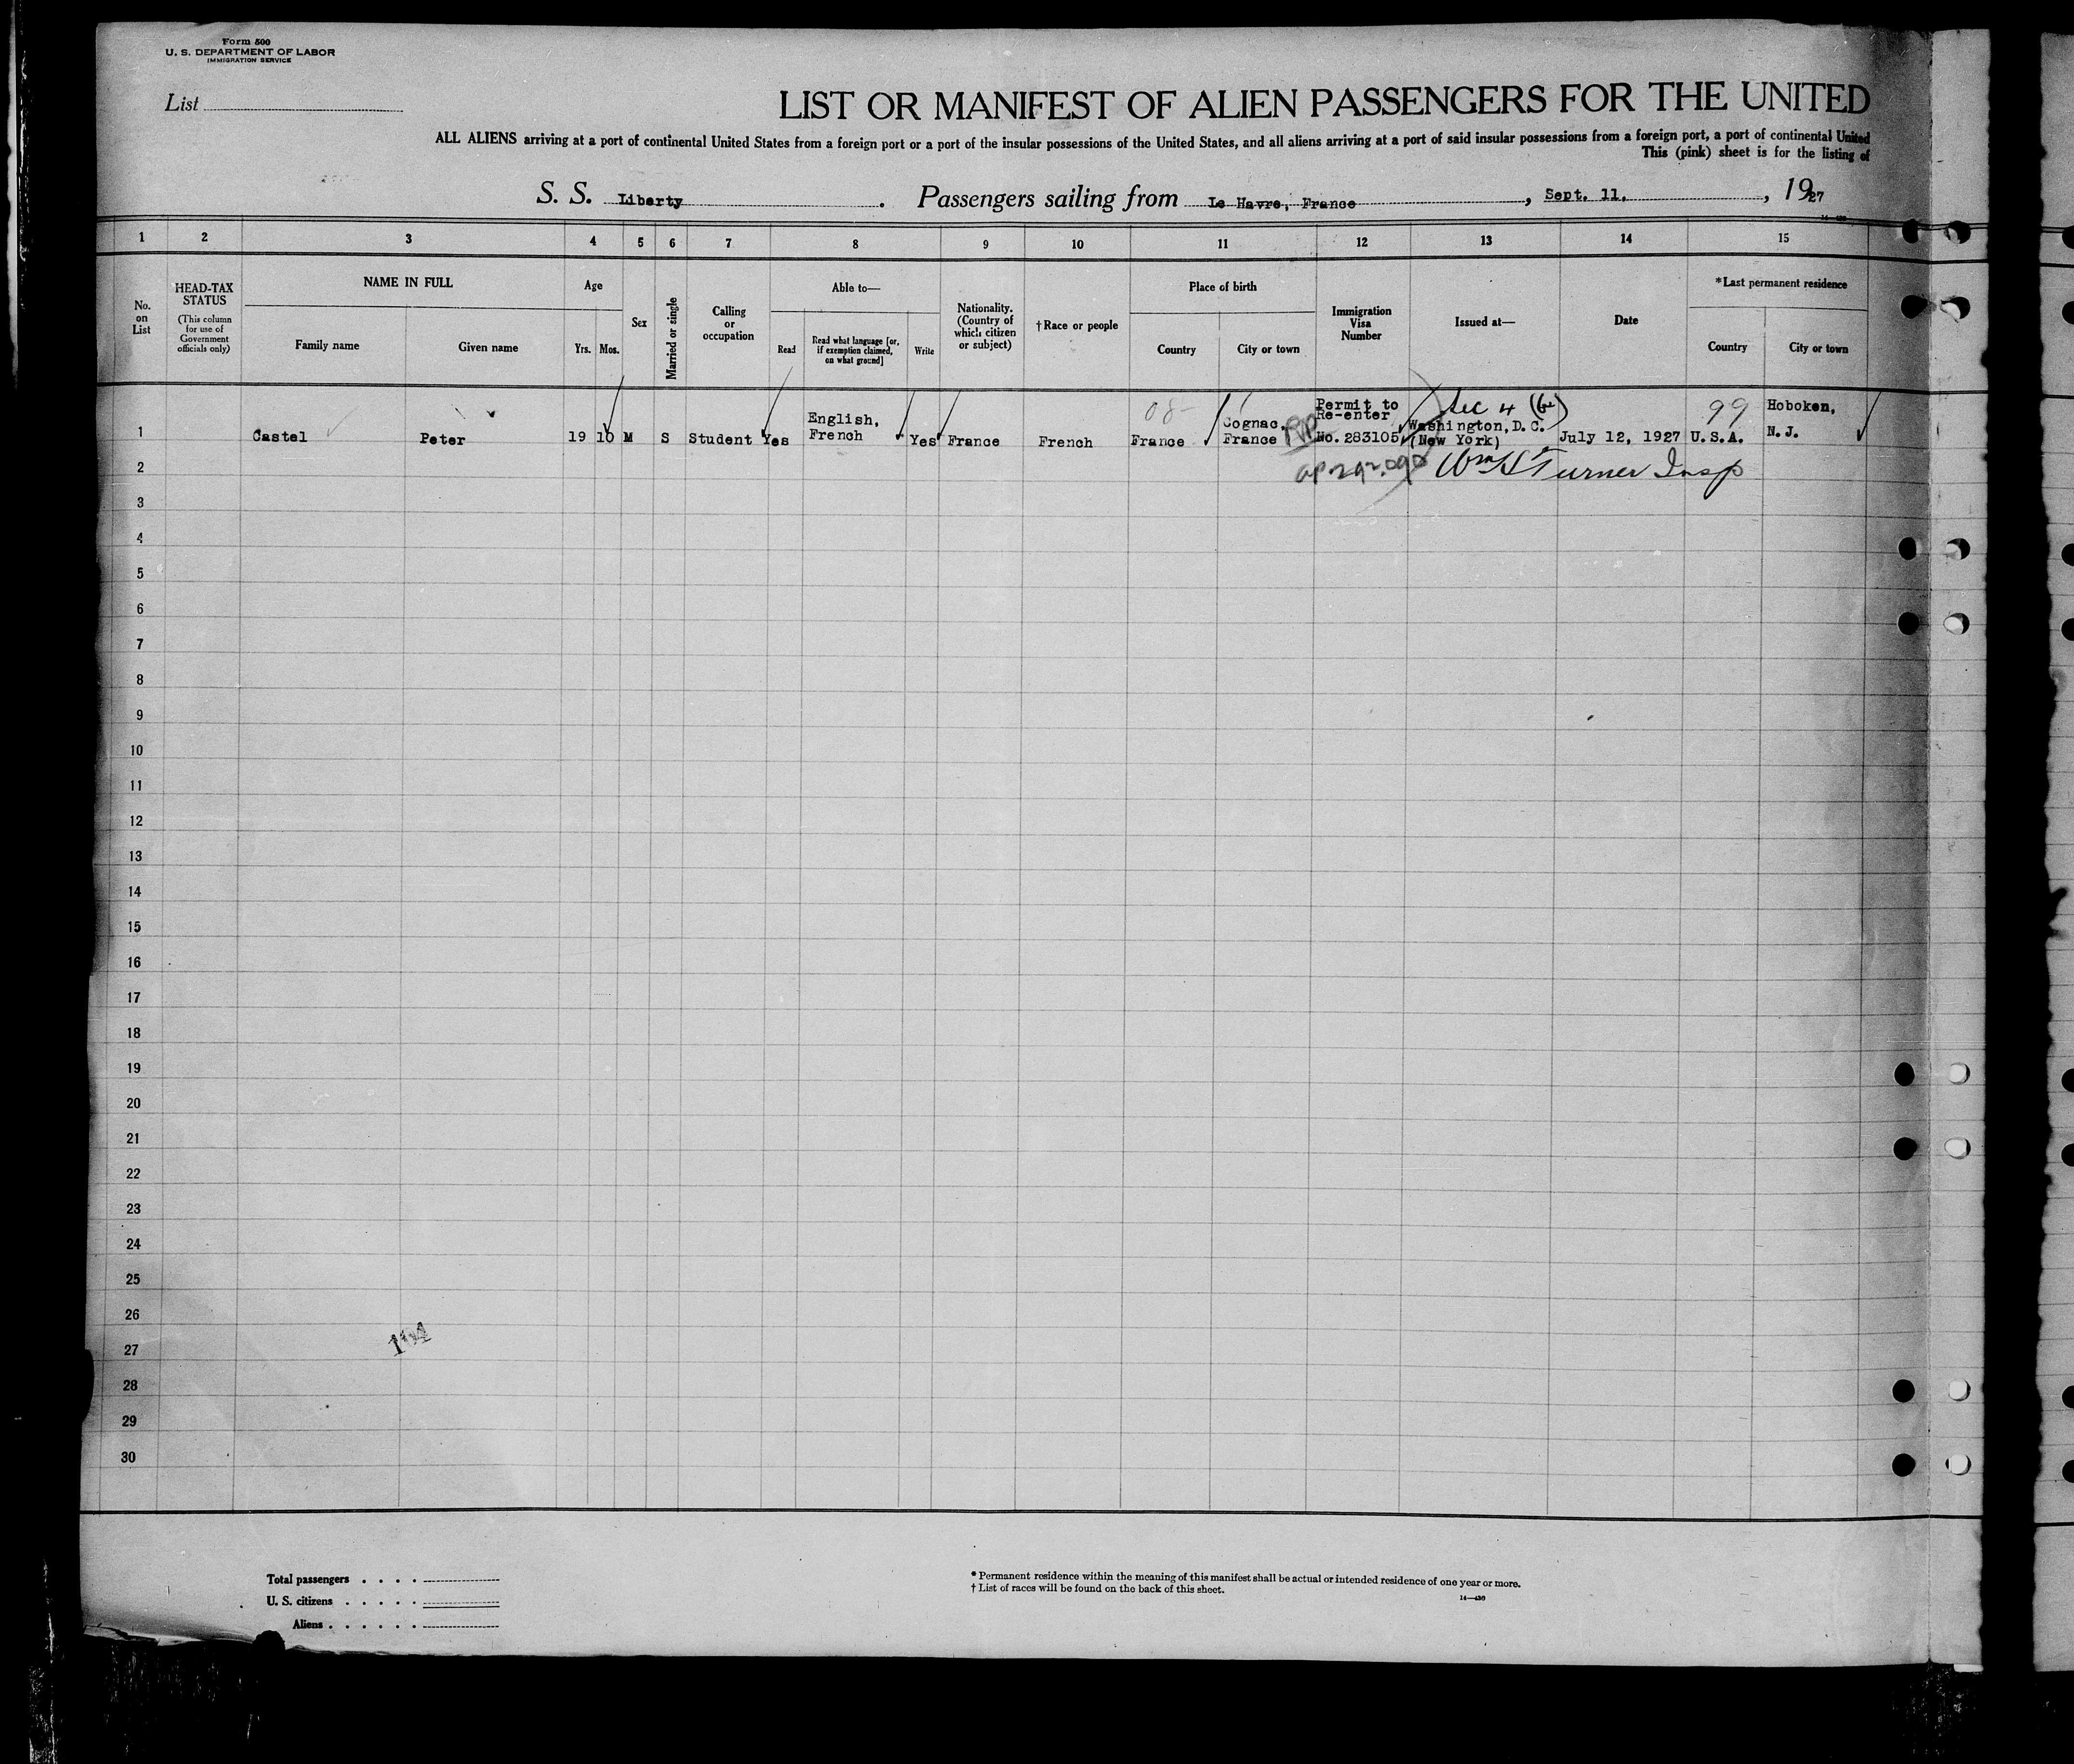 Form 500
U. S. DEPARTMENT OF LABOR
IMMIGRATION SERVICE
List
LIST OR MANIFEST OF ALIEN PASSENGERS FOR THE UNITED
ALL ALIENS arriving at a port of continental United States from a foreign port or a port of the insular possessions of the United States, and all aliens arriving at a port of said insular possessions from a foreign port, a port of continental United
This (pink) sheet is for the listing of
S. S. Liberty. Passengers sailing from Le Havre, France, Sept. 11, 1927
1 2 3 4 5 6 7 8 9 10 11 12 13 14 15
No. on List
HEAD-TAX STATUS
(This column for use of Government officials only)
NAME IN FULL
Family name
Given name
Age
Yrs. Mos.
Sex
Married or single
Calling or occupation
Able to—
Read
Read what language [or, if exemption claimed, on what ground]
Write
Nationality. (Country of which citizen or subject)
†Race or people
Place of birth
Country
City or town
Immigration Visa Number
Issued at—
Date
*Last permanent residence
Country
City or town
1 Castel Peter 19 10 M S Student Yes English, French Yes France French France Cognac, France Permit to Re-enter No. 283105 Washington, D.C. (New York) July 12, 1927 U.S.A. Hoboken, N. J.
08
RP
Sec 4 (b)
99
2
Wm S Turner Insp
3
4
5
6
7
8
9
10
11
12
13
14
15
16
17
18
19
20
21
22
23
24
25
26
27
104
28
29
30
Total passengers . . . .
U. S. citizens . . . . .
Aliens . . . . . .
* Permanent residence within the meaning of this manifest shall be actual or intended residence of one year or more.
† List of races will be found on the back of this sheet.
14—430